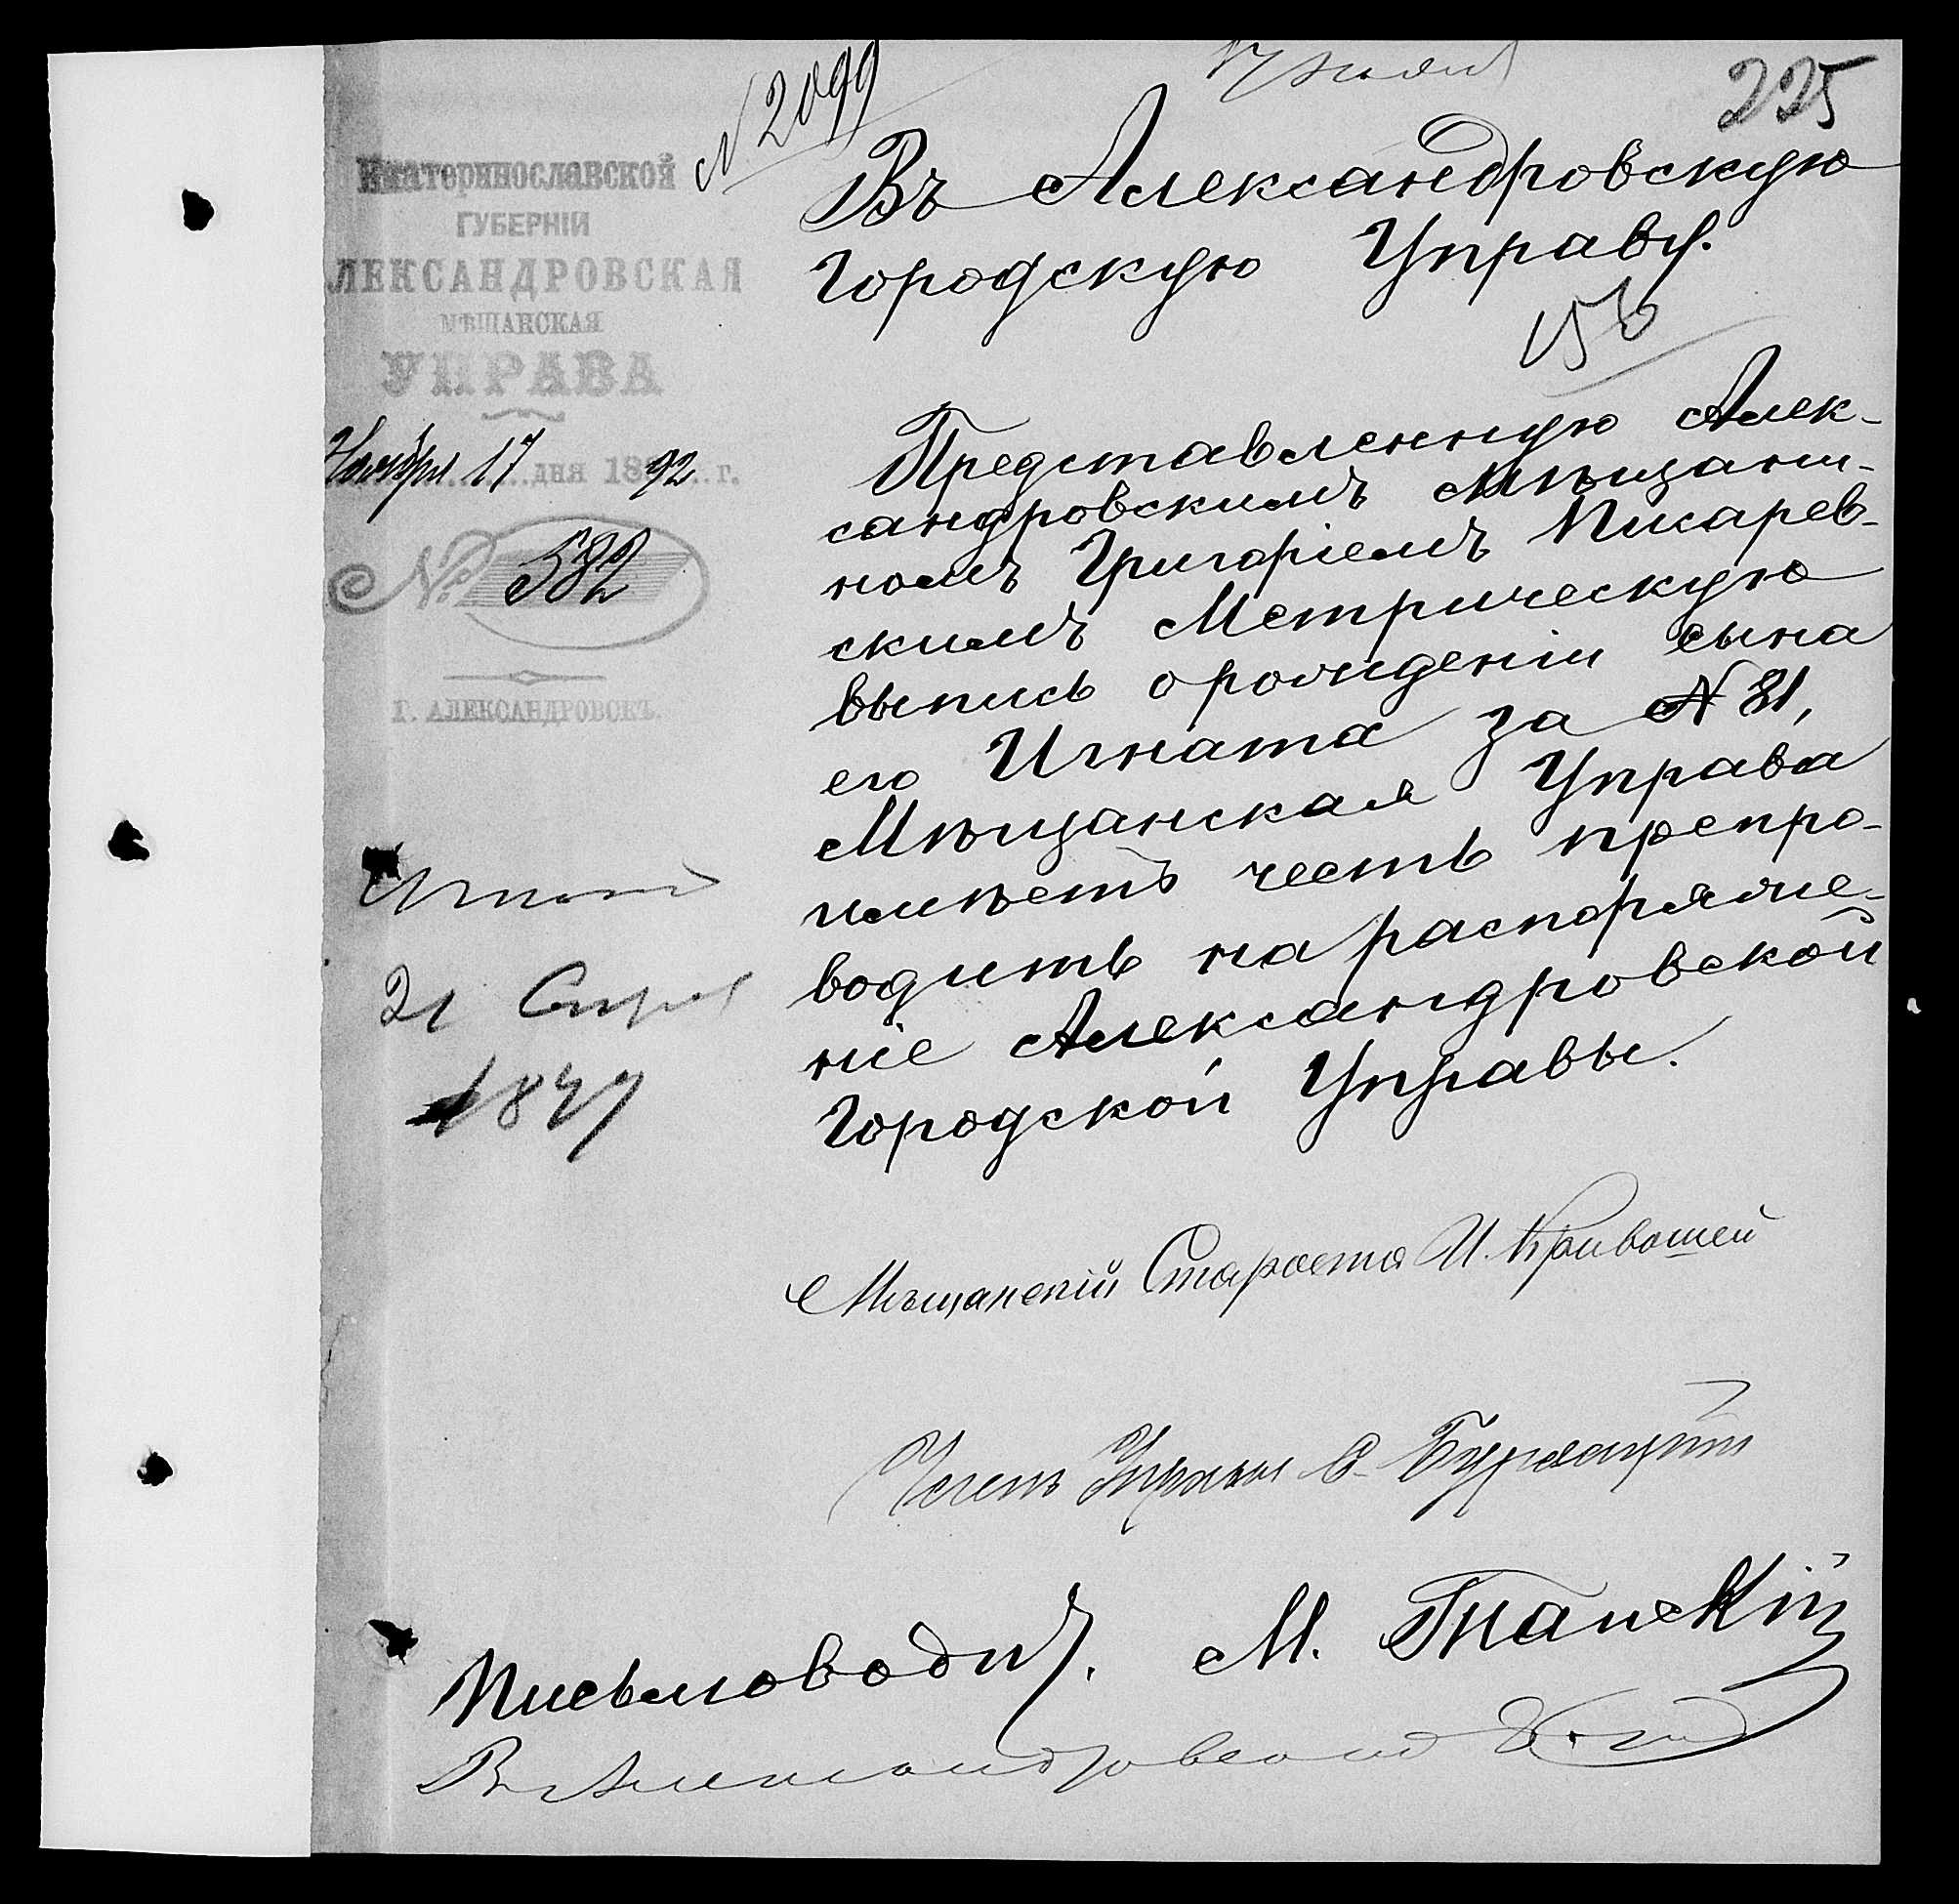 225
№ 2099
Екатеринославской
ГУБЕРНІИ
ЛЕКСАНДРОВСКАЯ
МѢЩАНСКАЯ
УПРАВА
Ноября 17 дня 1892 г.
№ 582
Г. АЛЕКСАНДРОВСКЪ.
Въ Александровскую
Городскую Управу.
Представленную Алек-
сандровскимъ Мѣщани-
номъ Григоріемъ Писарев-
скимъ Метрическую
выпись о рожденіи сына
его Игната за № 81,
Мѣщанская Управа
имѣетъ честь препро-
водить на распоряже-
ніе Александровской
Городской Управы.
21
Мѣщанскій Староста И. Кривошей
Членъ Управы
Письмоводит. М.